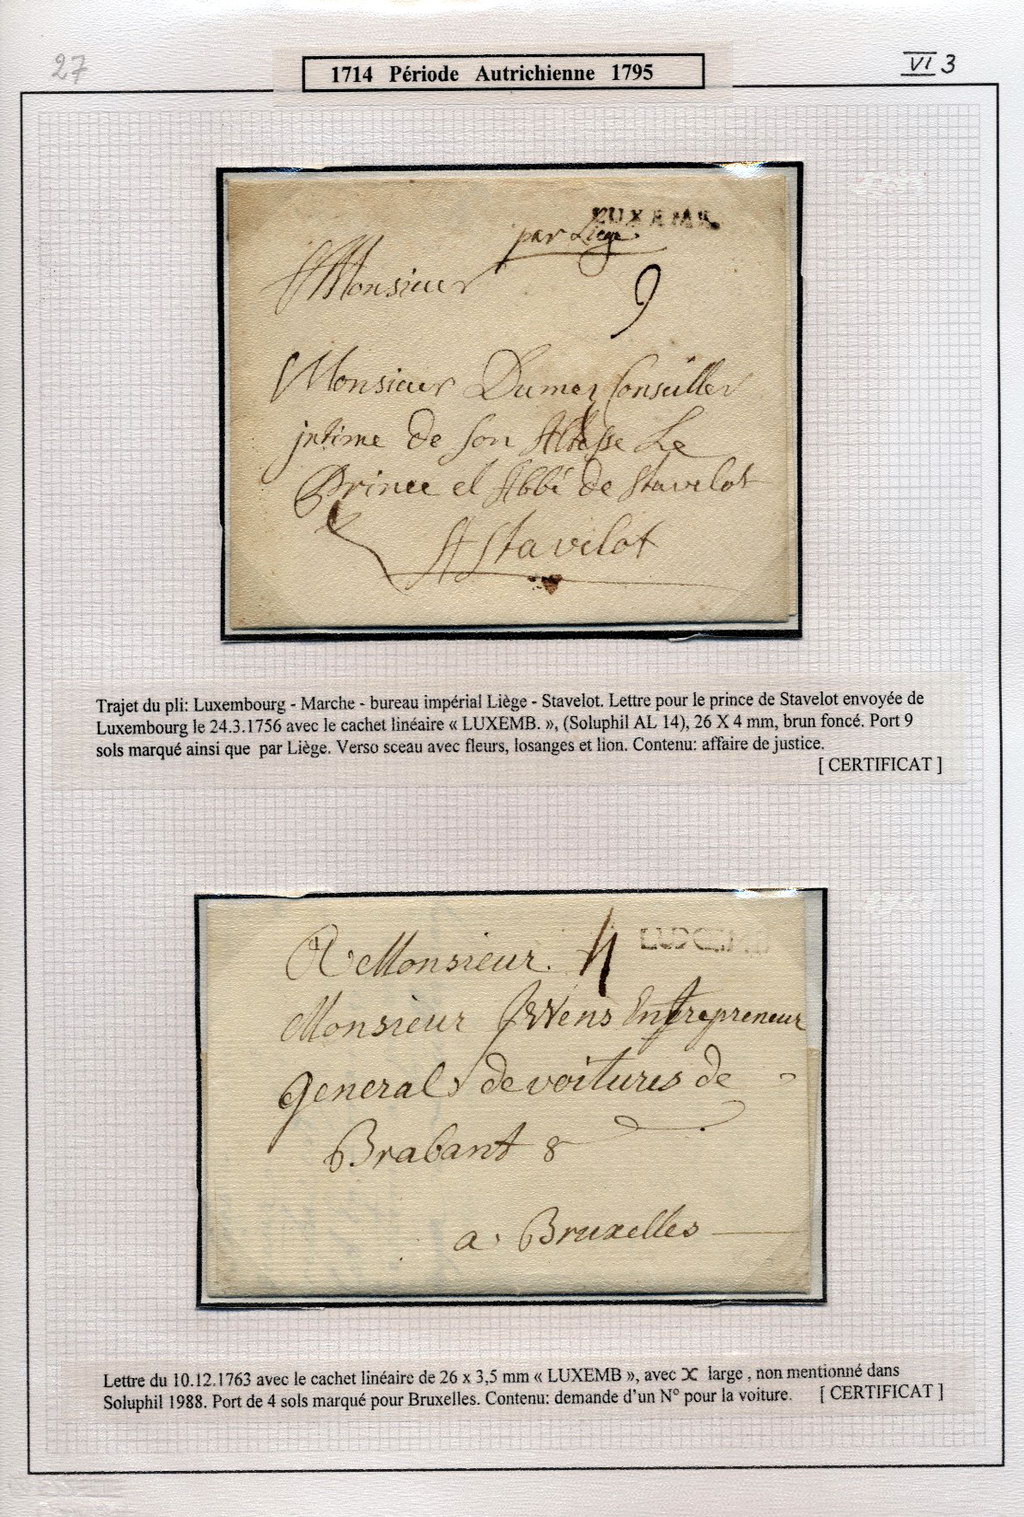 27
1714 Période Autrichienne 1795
VI 3
LUXEMB.
par Liege.
Monsieur
9
Monsieur Dumez Conseiller
intime de son Altesse Le
Prince et Abbé de Stavelot
A Stavelot
Trajet du pli: Luxembourg - Marche - bureau impérial Liège - Stavelot. Lettre pour le prince de Stavelot envoyée de
Luxembourg le 24.3.1756 avec le cachet linéaire « LUXEMB. », (Soluphil AL 14), 26 X 4 mm, brun foncé. Port 9
sols marqué ainsi que par Liège. Verso sceau avec fleurs, losanges et lion. Contenu: affaire de justice.
[ CERTIFICAT ]
A Monsieur. 4 LUXEMB
Monsieur Entrepreneur
general de voitures de
Brabant &
a. Bruxelles
Lettre du 10.12.1763 avec le cachet linéaire de 26 x 3,5 mm « LUXEMB », avec X large , non mentionné dans
Soluphil 1988. Port de 4 sols marqué pour Bruxelles. Contenu: demande d'un N° pour la voiture. [ CERTIFICAT ]